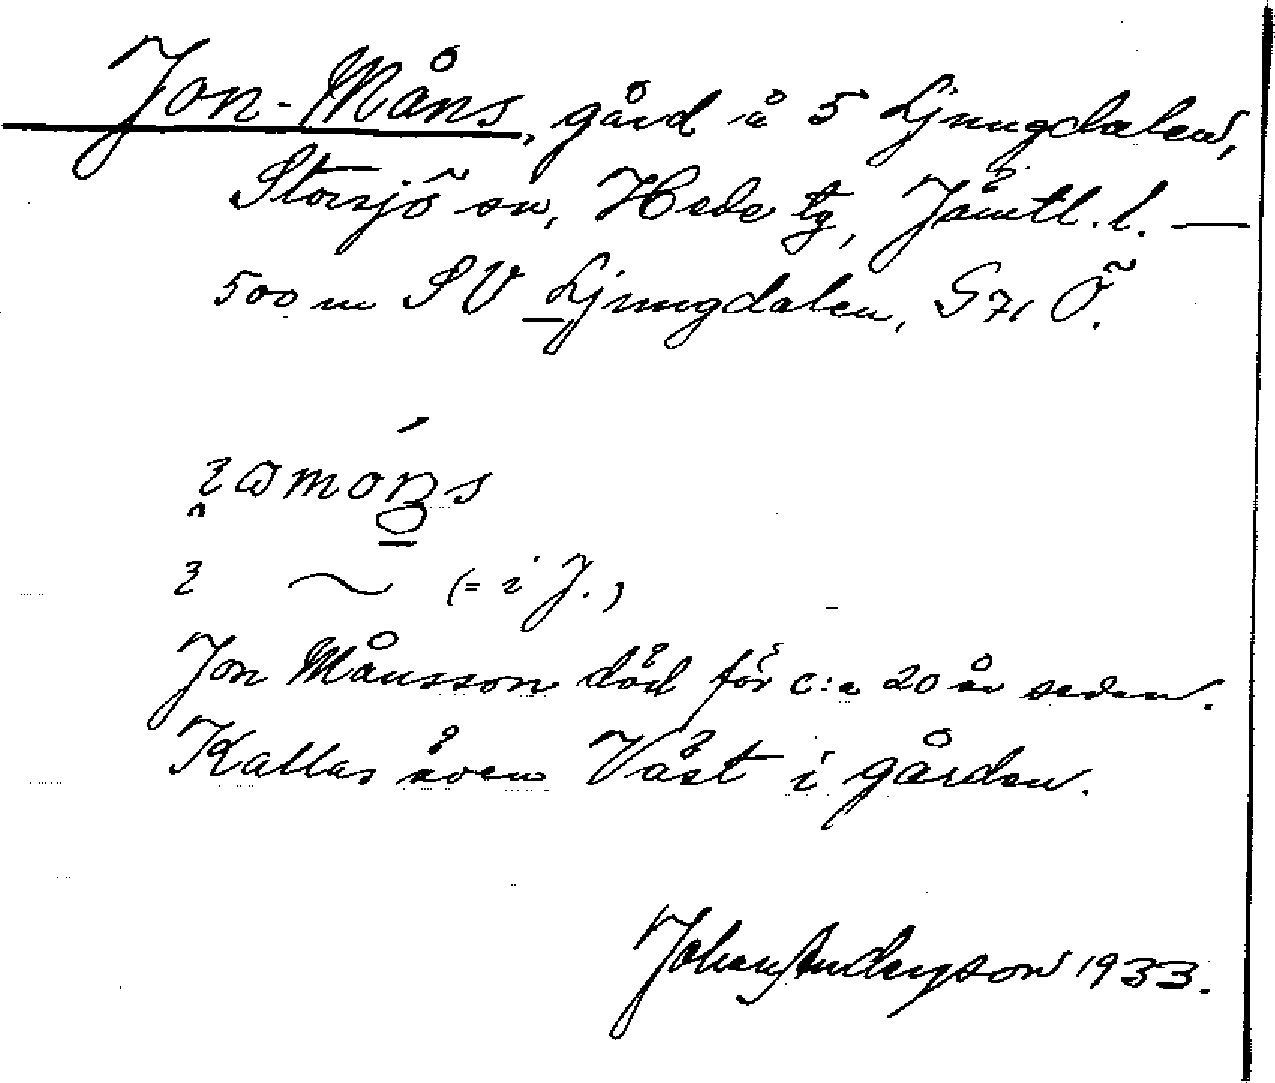 Jon-Måns, gård å 5 Ljungdalen,
Storsjö sn, Hede tg, Jämtl. l. —
500 m SV Ljungdalen, G 71 Ö.
(= i J.)
Jon Månsson död för c:a 20 år sedan.
Kallas även Väst i gården.
Johan Anderson 1933.